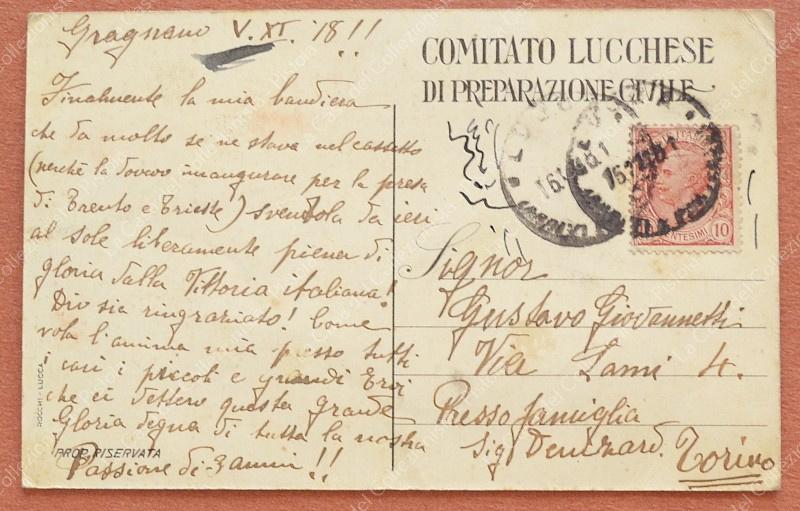 Gragnano V. XI. '18!!
Finalmente la mia bandiera
che da molto se ne stava nel cassetto
(perchè la dovevo inaugurare per la presa
di Trento e Trieste) sventola da ieri
al sole liberamente piena di
gloria dalla Vittoria italiana!
Dio sia ringraziato! Come
vola l'anima mia presso tutti
i cari i piccoli e grandi Eroi
che ci dettero questa grande
Gloria degna di tutta la nostra
Passione di anni!!
ROCCHI - LUCCA
PROP. RISERVATA
COMITATO LUCCHESE
DI PREPARAZIONE CIVILE
10
Signor
Gustavo Giovannetti
Via Lami 4.
Presso famiglia
Sig. Denizard.
Torino